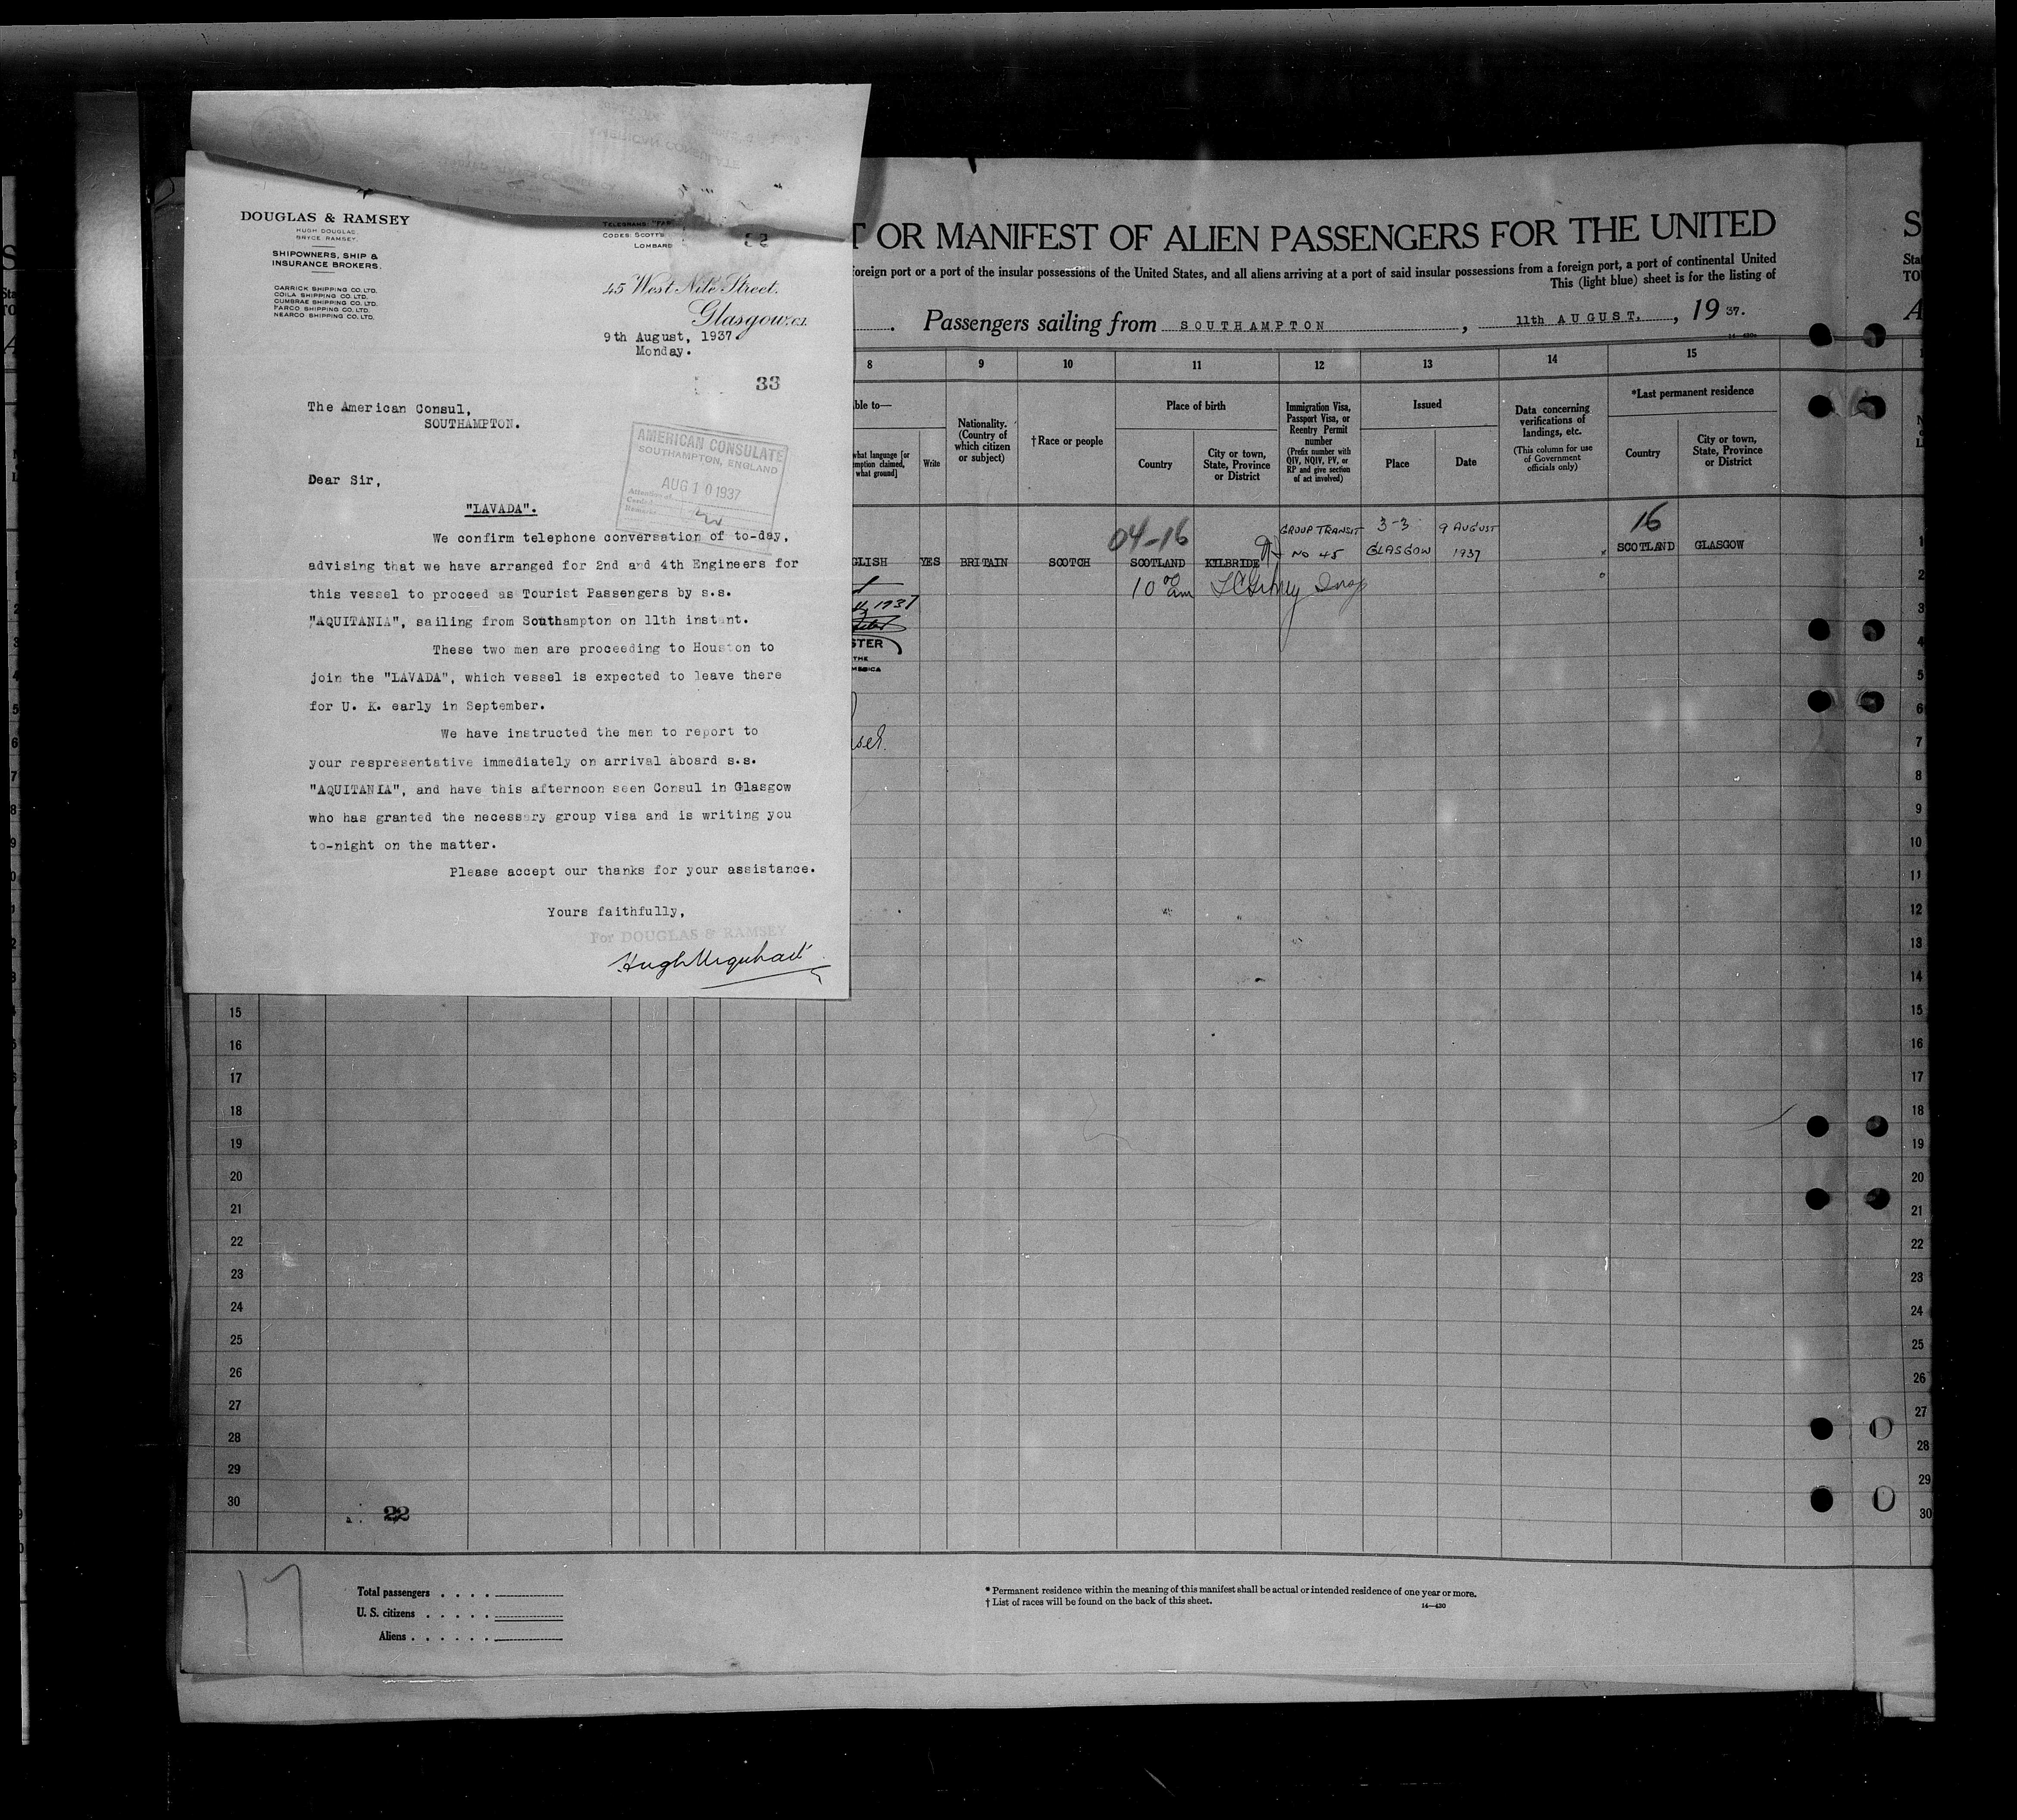 DOUGLAS & RAMSEY
HUGH DOUGLAS.
BRYCE RAMSEY.
SHIPOWNERS, SHIP &
INSURANCE BROKERS.
CARRICK SHIPPING CO. LTD.
COILA SHIPPING CO. LTD.
CUMBRAE SHIPPING CO. LTD.
FARCO SHIPPING CO. LTD.
NEARCO SHIPPING CO. LTD.
TELEGRAMS:
CODES: SCOTT'S
LOMBARD
45 West Nile Street.
Glasgow. C.1.
9th August, 1937.
Monday.
33
The American Consul,
SOUTHAMPTON.
AMERICAN CONSULATE
SOUTHAMPTON, ENGLAND
AUG 10 1937
Dear Sir,
"LAVADA".
We confirm telephone conversation of to-day,
advising that we have arranged for 2nd and 4th Engineers for
this vessel to proceed as Tourist Passengers by s.s.
"AQUITANIA", sailing from Southampton on 11th instant.
These two men are proceeding to Houston to
join the "LAVADA", which vessel is expected to leave there
for U. K. early in September.
We have instructed the men to report to
your respresentative immediately on arrival aboard s.s.
"AQUITANIA", and have this afternoon seen Consul in Glasgow
who has granted the necessary group visa and is writing you
to-night on the matter.
Please accept our thanks for your assistance.
Yours faithfully,
For DOUGLAS & RAMSEY
Hugh Urquhart
T OR MANIFEST OF ALIEN PASSENGERS FOR THE UNITED
foreign port or a port of the insular possessions of the United States, and all aliens arriving at a port of said insular possessions from a foreign port, a port of continental United
This (light blue) sheet is for the listing of
Passengers sailing from SOUTHAMPTON, 11th AUGUST, 1937.
8 9 10 11 12 13 14 15
ble to—
what language [or
mption claimed,
what ground]
Write
Nationality.
(Country of
which citizen
or subject)
†Race or people
Place of birth
Country
City or town,
State, Province
or District
Immigration Visa,
Passport Visa, or
Reentry Permit
number
(Prefix number with
QIV, NQIV, PV, or
RP and give section
of act involved)
Issued
Place
Date
Data concerning
verifications of
landings, etc.
(This column for use
of Government
officials only)
*Last permanent residence
Country
City or town,
State, Province
or District
04-16 GROUP TRANSIT 3-3 9 AUGUST 16
GLISH YES BRITAIN SCOTCH SCOTLAND KILBRIDE NO 45 GLASGOW 1937 SCOTLAND GLASGOW
10 00 am
1937
STER
THE
MERICA
1
2
3
4
5
6
7
8
9
10
11
12
13
14
15 15
16 16
17 17
18 18
19 19
20 20
21 21
22 22
23 23
24 24
25 25
26 26
27 27
28 28
29 29
30 30
22
17
Total passengers
U. S. citizens
Aliens
* Permanent residence within the meaning of this manifest shall be actual or intended residence of one year or more.
† List of races will be found on the back of this sheet.
14—430